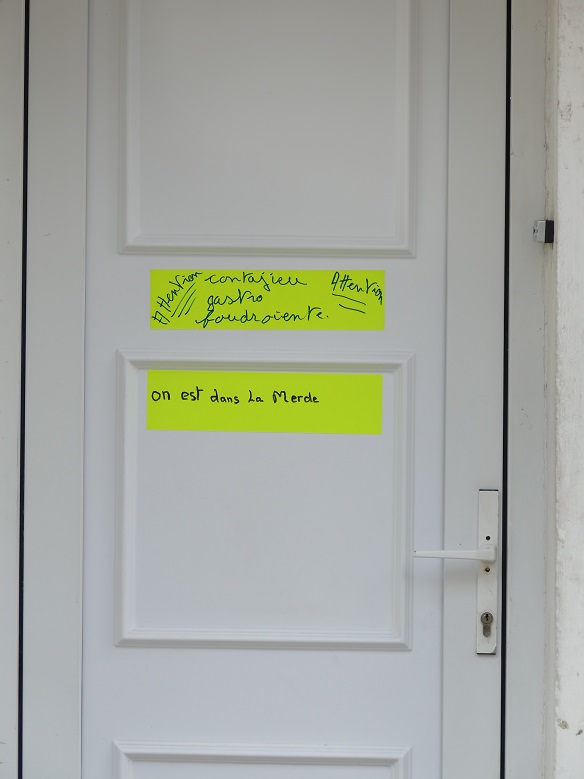 Attention
contajieu
Attention
gastro
foudroiente.
on est dans La Merde